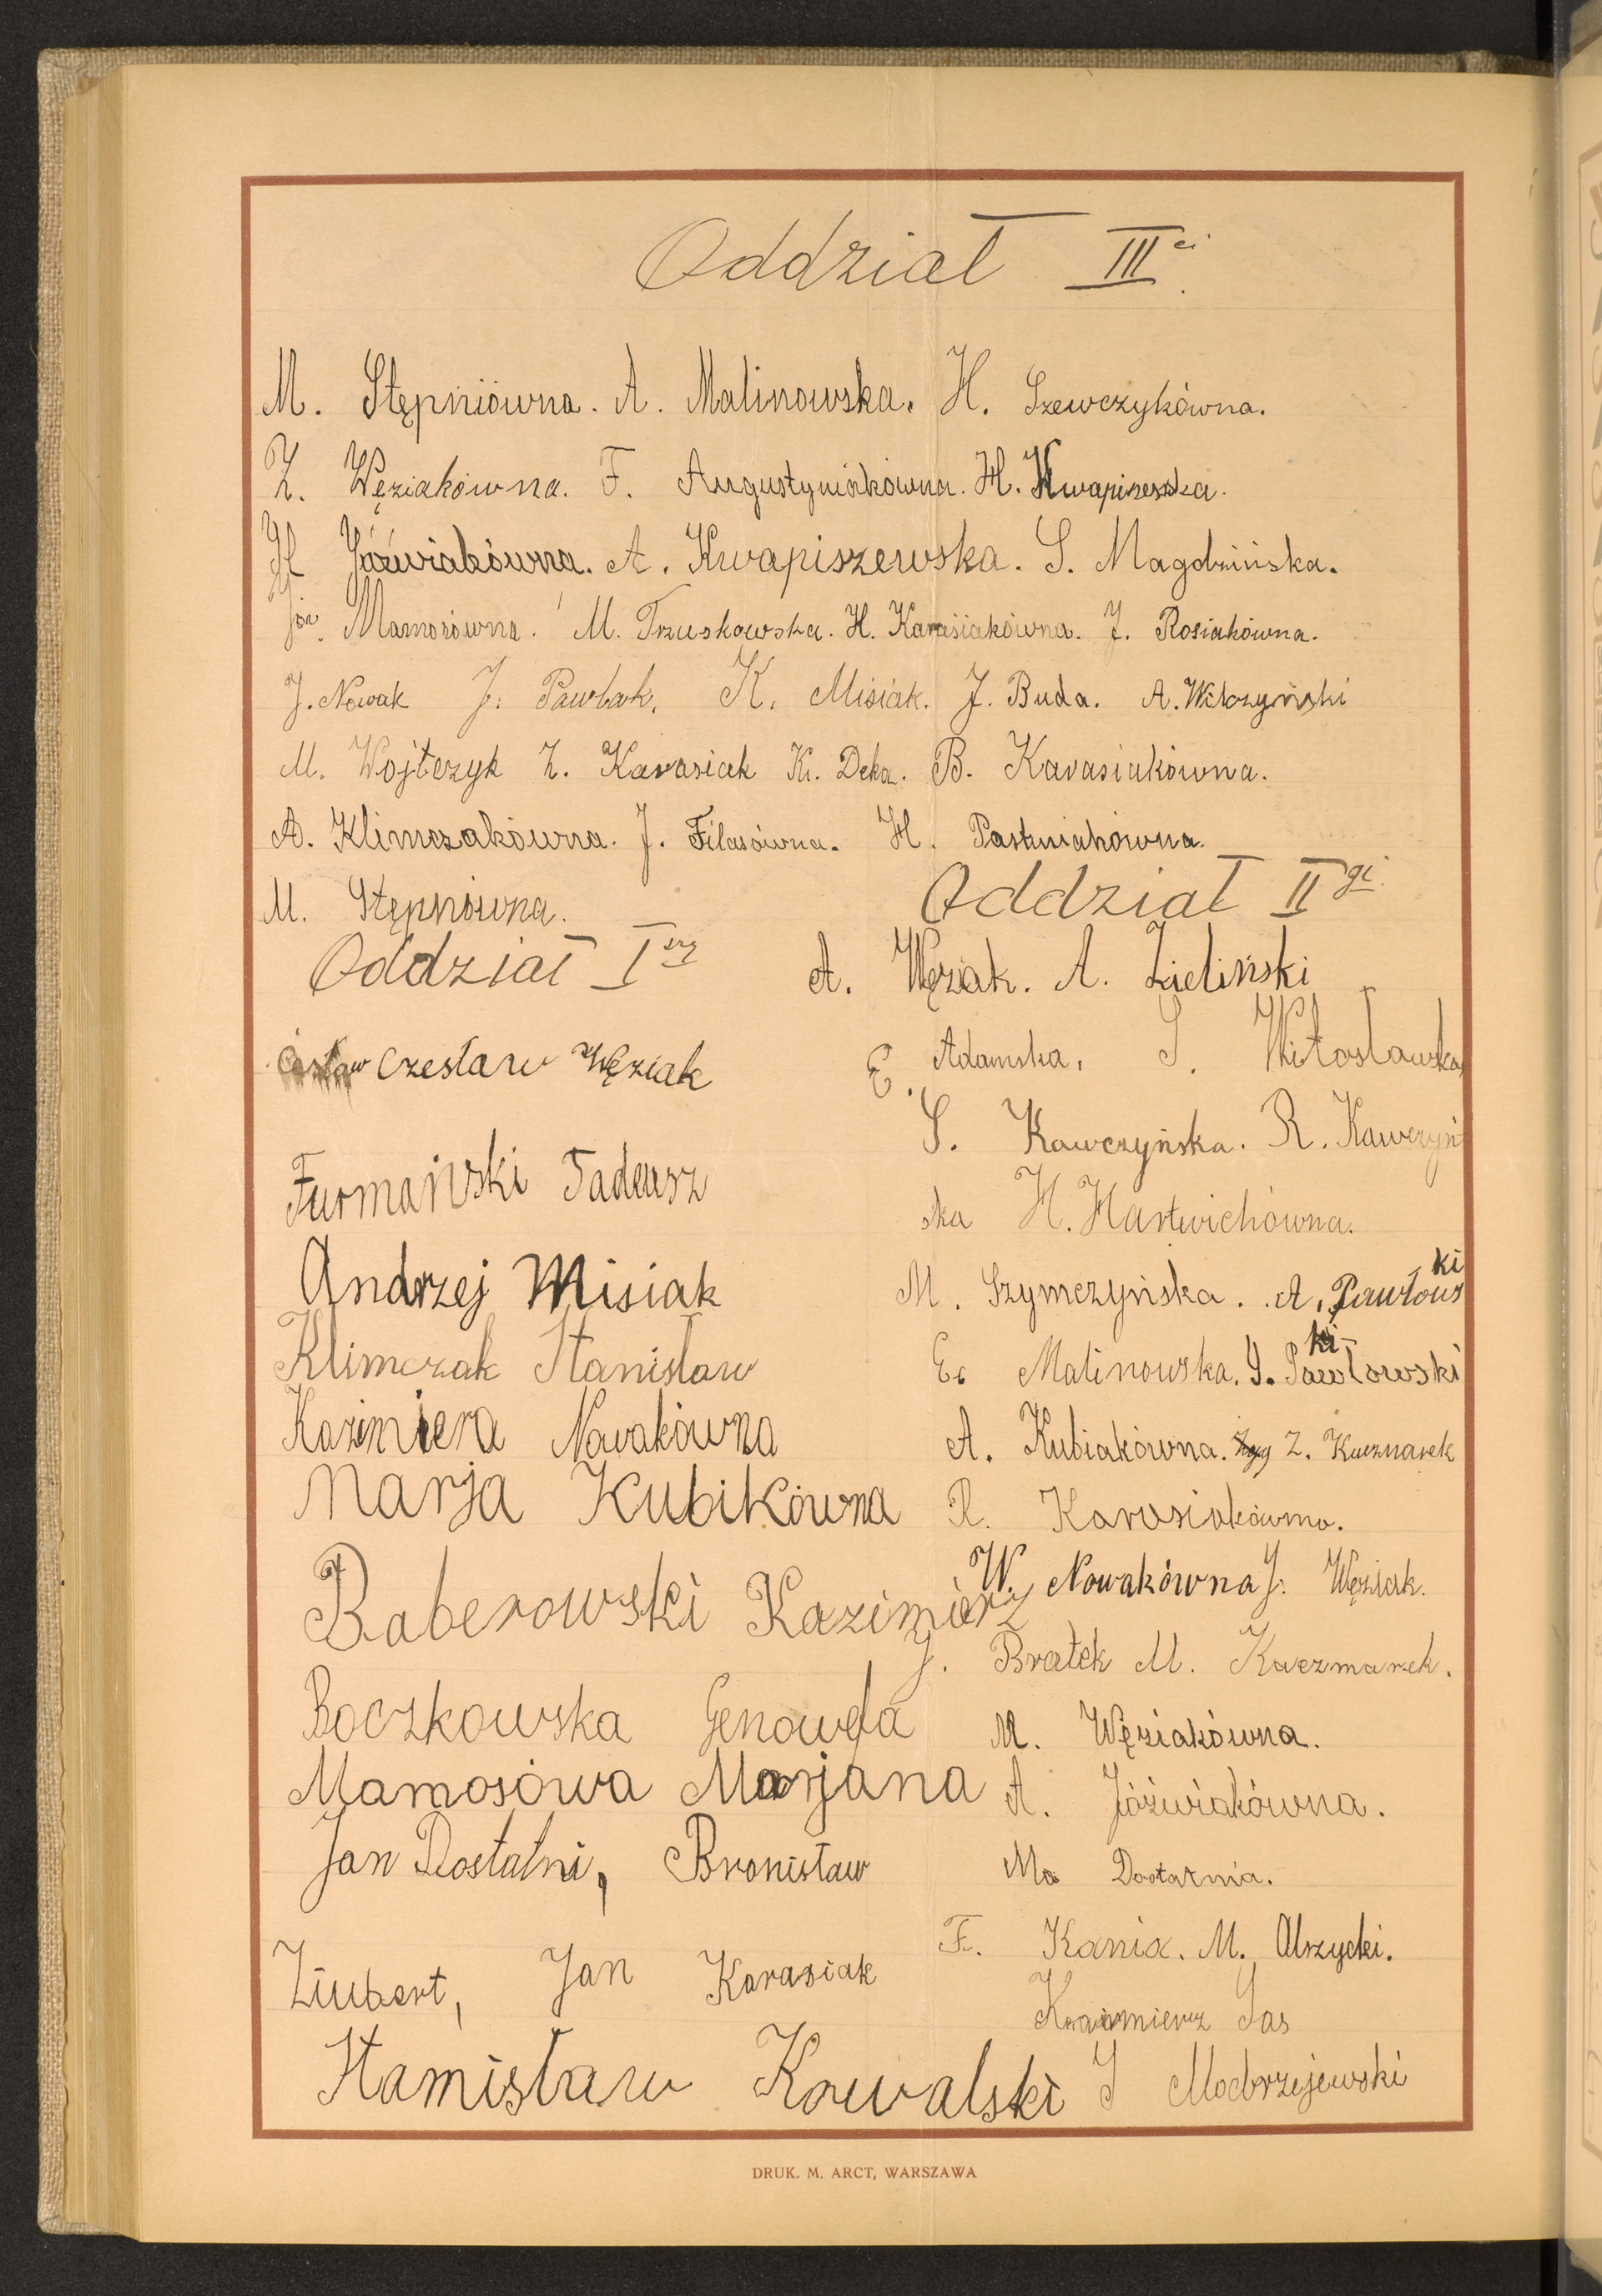 Oddział III ci.
M. Stępniówna. A. Malinowska. H. Szewczykówna.
Z. Węziakówna. F. Augustyniakówna. H.
H Jóźwiakówna. A. Kwapiszewska. S. Magdzińska.
Józ. Mamosówna. M. Truskowska. H. Karasiakówna. J. Rosiakówna.
J. Nowak J. Pawlak. K. Misiak. J. Buda. A. Wilczyński
M. Wojtczyk Z. Karasiak K. Deka. B. Karasiakówna.
A. Klimczakówna. J. Filasówna. H. Pastwiakówna.
M. Stępniówna.
Oddział II gi.
A. Węziak. A. Zieliński
E. Adamska, S. Witosławska
S. Kawczyńska. R. Kawczyń
ska H. Hartwichówna.
M. Szymczyńska. A. Pawłows
ki
E. Malinowska. S. Pawłowski
ki
A. Kubiakówna. Z. Kaczmarek
R. Karasiakówna.
W. Nowakówna J. Węziak.
J. Bratek M. Kaczmarek.
M. Węziakówna.
A. Jóźwiakówna.
Ma Dostatnia.
F. Kania. M. Olszycki.
Kazimierz Jas
J Modrzejewski
Oddział I szy
Czesław Węziak
Furmański Tadeusz
Andrzej Misiak
Klimczak Stanisław
Kazimiera Nowakówna
Marja Kubikówna
Raberowski Kazimierz
Boczkowska Genowefa
Mamosówa Marjana
Jan Dostatni, Bronisław
Ziubert, Jan Karasiak
Stamisław Kowalski
DRUK. M. ARCT, WARSZAWA